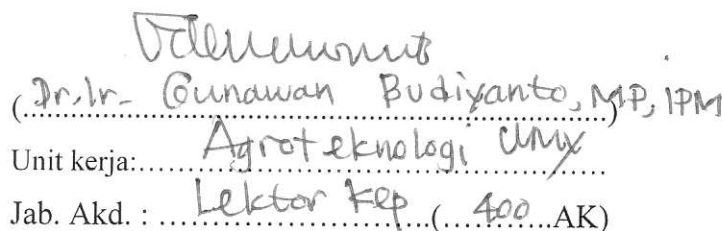 (Dr. Ir. Gunawan Budiyanto, MP, IPM)
Unit kerja: Agroteknologi UMY
Jab. Akd. : Lektor Kep (400 AK)